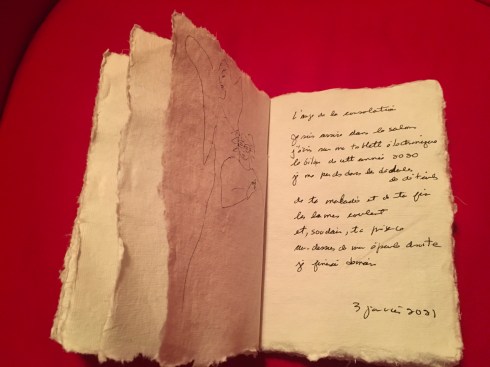 L'ange de la consolation
je suis assise dans le salon
j'écris sur ma tablette électronique
le bilan de cette année 2020
je me perds dans les dédales
de détails
de ta maladie et de ta fin
les larmes coulent
et, soudain, ta présence
au-dessus de mon épaule droite
je finirai demain
3 janvier 2021